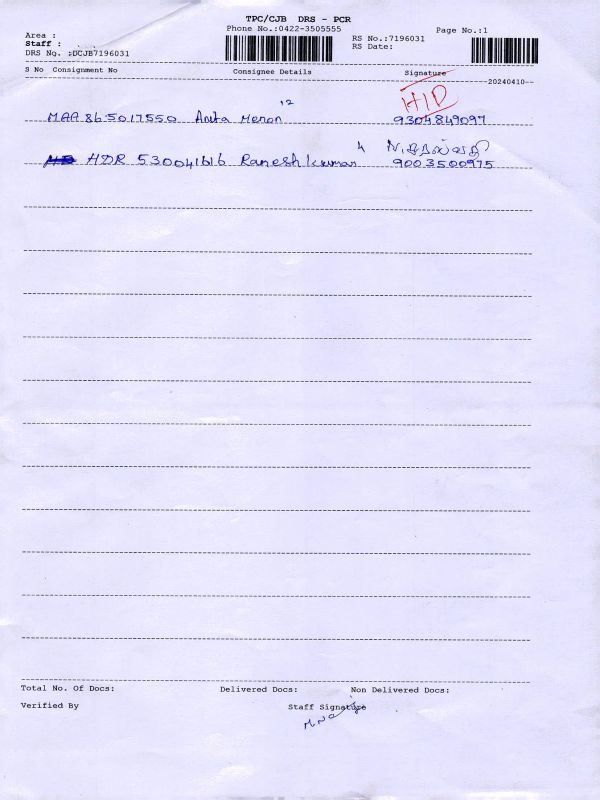 TPC/CJB DRS - PCR
Phone No.:0422-3505555
Page No.:1
Area :
RS No.:7196031
Staff :
RS Date:
DRS No. :DCJB7196031
S No Consignment No Consignee Details Signature
--20240410--
12
H/D
MAA 865017550 Anita Menon 9304849097
4
HDR 530041616 Ranesh kumar 9003500975
Total No. Of Docs: Delivered Docs: Non Delivered Docs:
Verified By Staff Signature